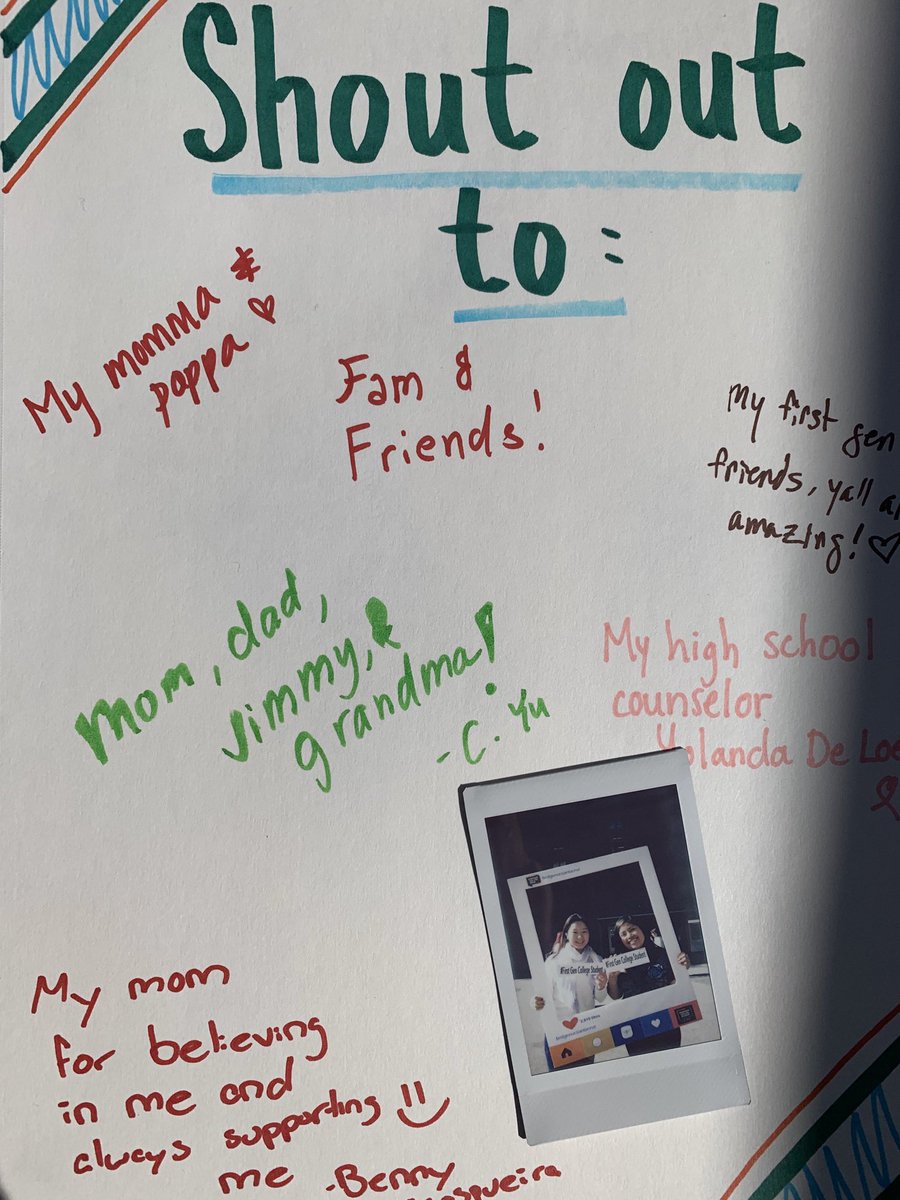 Shout out
to:
My momma &
poppa ♡
Fam &
Friends!
My first gen
friends, yall
amazing! ♡
Mom, dad,
Jimmy, &
grandma!
- C. Yu
My high school
counselor
Yolanda De
#First Gen College Student
#First Gen College Student
My mom
for believing
in me and
always supporting
me -Benny